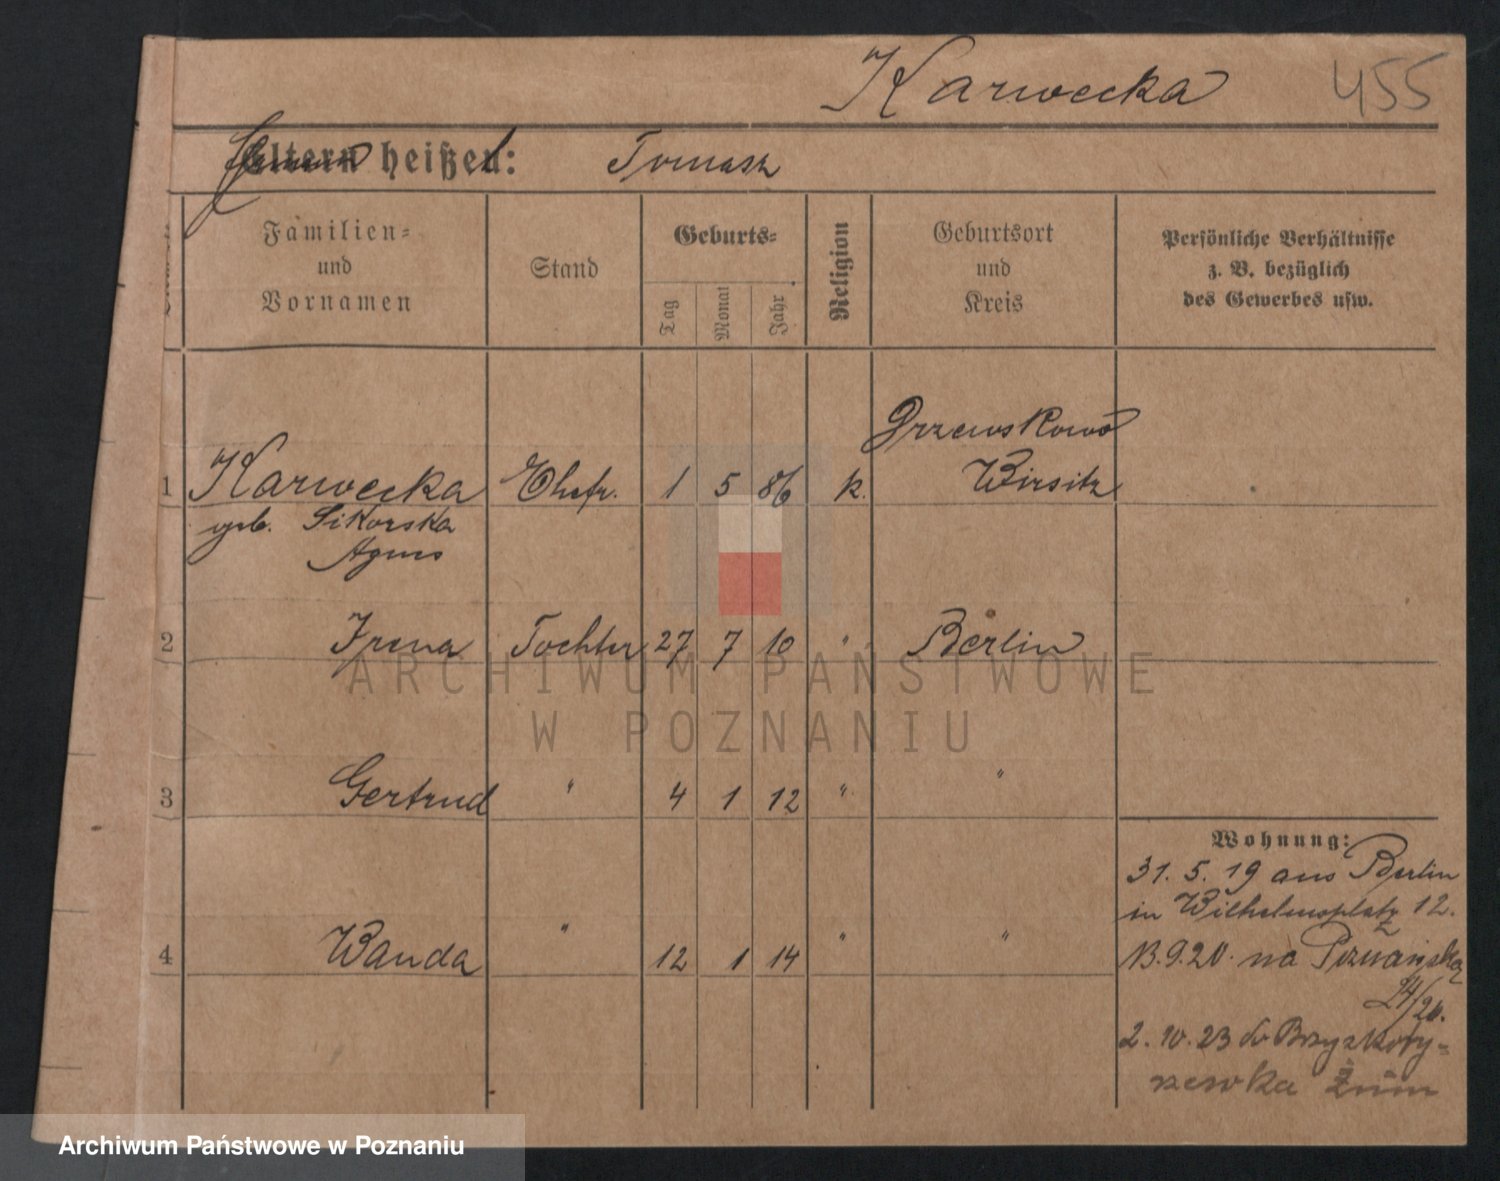 Karwecka 455
Eltern heißen: Tomasz
Familien-
und
Vornamen
Stand
Geburts-
Tag
Monat
Jahr
Religion
Geburtsort
und
Kreis
Persönliche Verhältnisse
z. B. bezüglich
des Gewerbes usw.
Grzewskowo
1 Karwecka Ehefr. 1 5 86 k. Wirsitz
geb. Sikorska
Agnes
2 Irena Tochter 27 7 10 " Berlin
3 Gertrud " 4 1 12 " "
4 Wanda " 12 1 14 " "
Wohnung:
31. 5. 19 aus Berlin
in Wilhelmsplatz 12.
13.9.20. na Poznańska
2. 10. 23 do
ARCHIWUM PAŃSTWOWE
W POZNANIU
Archiwum Państwowe w Poznaniu